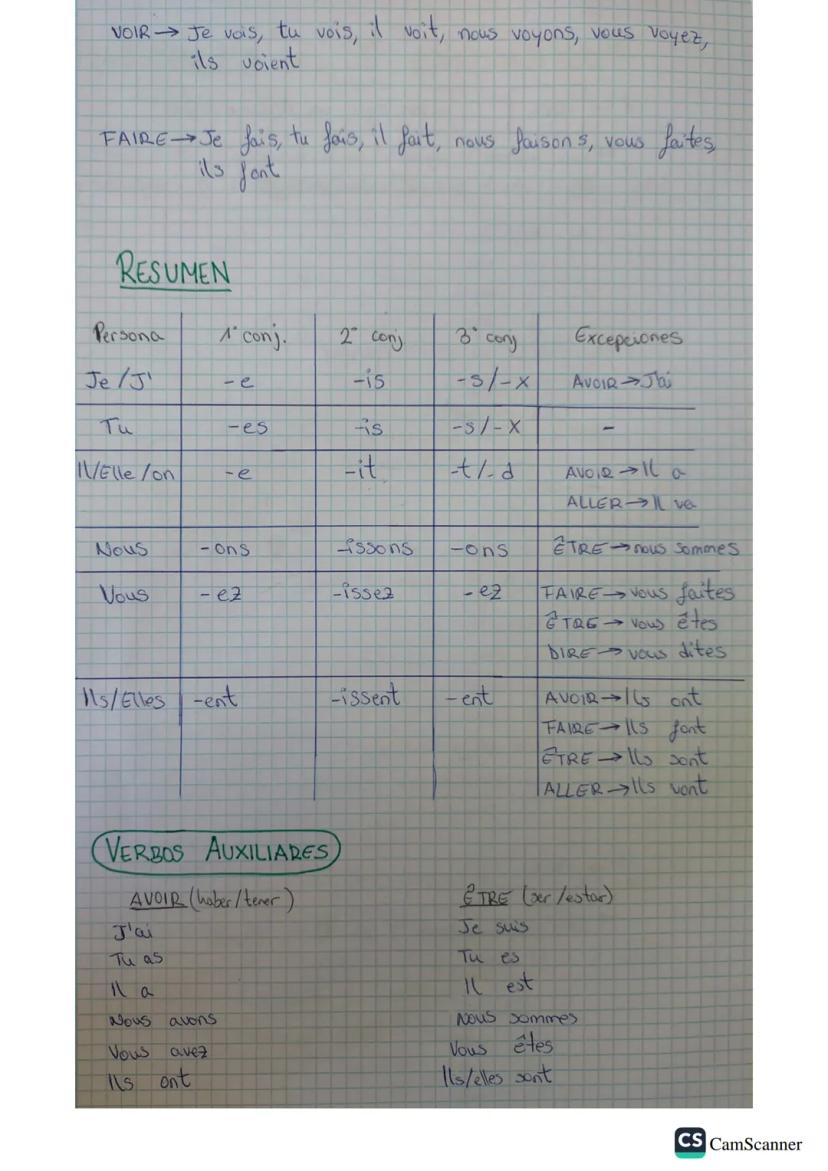 VOIR → Je vois, tu vois, il voit, nous voyons, vous voyez,
ils voient
FAIRE → Je fais, tu fais, il fait, nous faisons, vous faites,
ils font
RESUMEN
Persona 1ª conj. 2ª conj 3ª conj Excepciones
Je /J' -e -is -s/-x AVOIR → J'ai
Tu -es -is -s/-x -
Il/Elle/on -e -it -t/-d AVOIR → Il a
ALLER → Il va
Nous -ons -issons -ons ÊTRE → nous sommes
Vous -ez -issez -ez FAIRE → vous faites
ÊTRE → vous êtes
DIRE → vous dites
Ils/Elles -ent -issent -ent AVOIR → Ils ont
FAIRE → Ils font
ÊTRE → Ils sont
ALLER → Ils vont
VERBOS AUXILIARES
AVOIR (haber/tener) ÊTRE (ser/estar)
J'ai Je suis
Tu as Tu es
Il a Il est
Nous avons Nous sommes
Vous avez Vous êtes
Ils ont Ils/elles sont
CS CamScanner